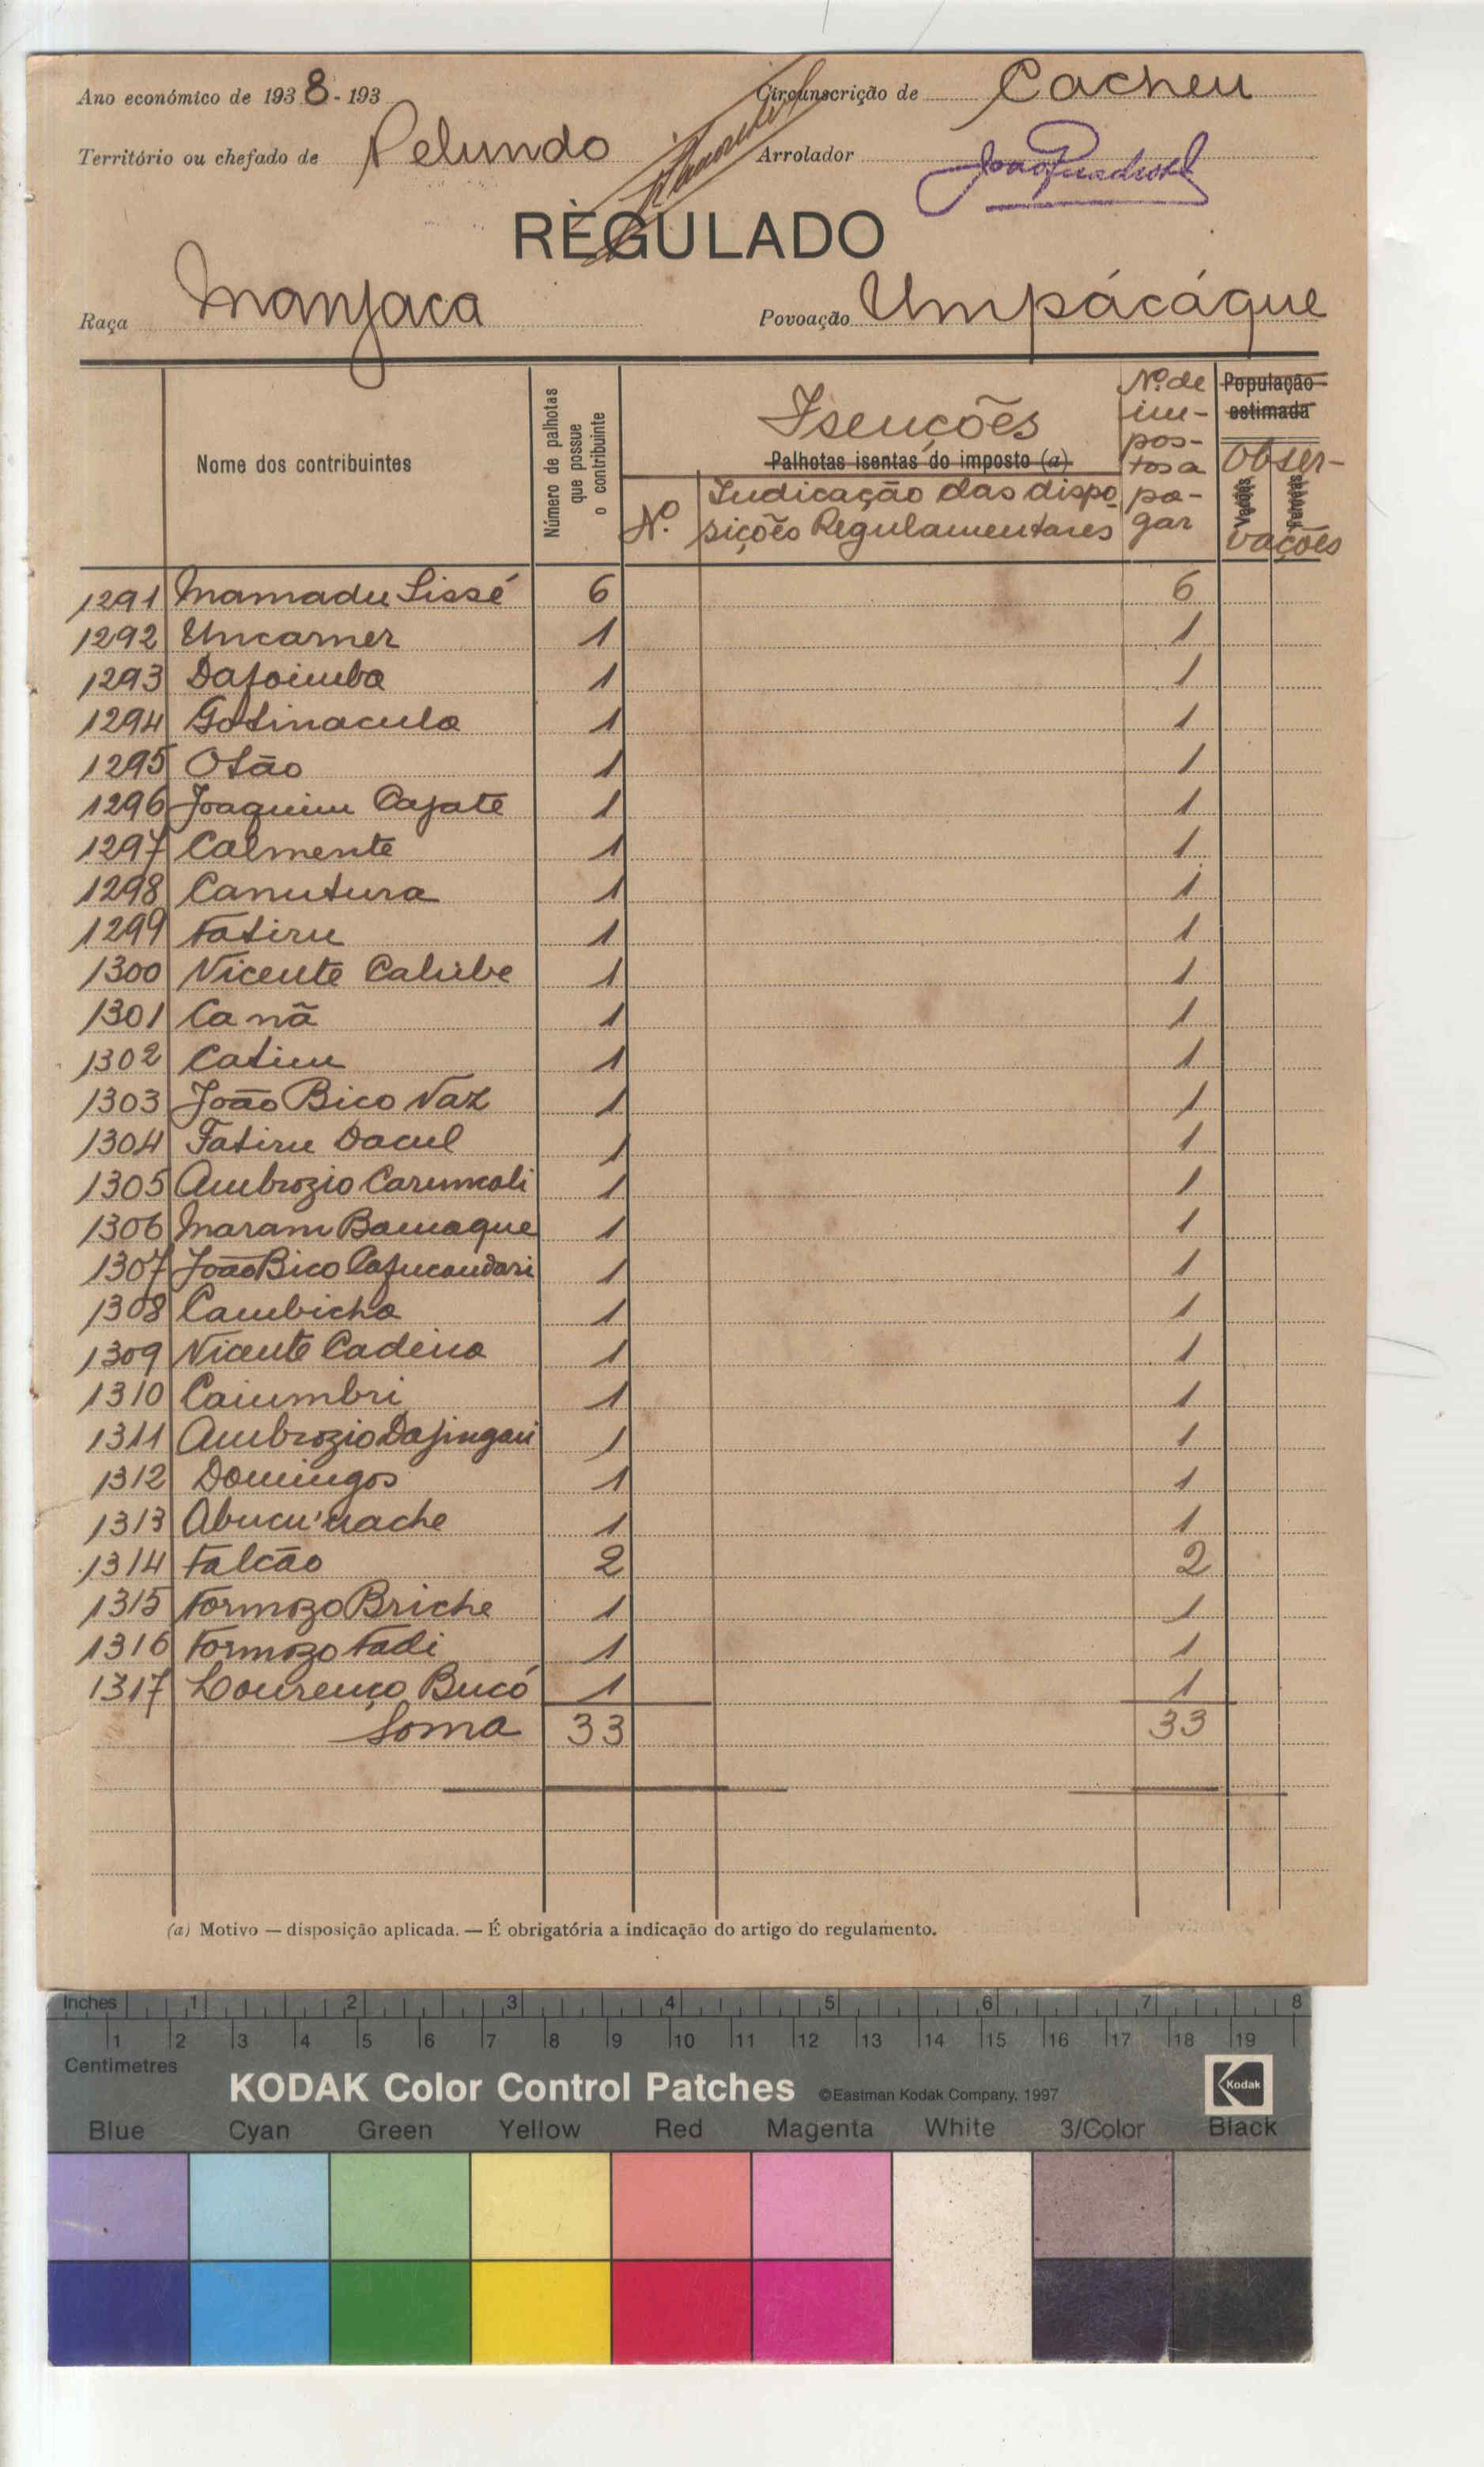 Ano económico de 1938-193 Circunscrição de Cacheu
Território ou chefado de Pelundo Arrolador
REGULADO
Raça Manjaca Povoação Umpácáque
Nome dos contribuintes
Número de palhotas
que possue
o contribuinte
Isenções
Palhotas isentas do imposto (a)
Nº
Indicação das dispo
sições Regulamentares
Nº de
im-
pos-
tos a
pa-
gar
População
estimada
Obser-
vações
1291 Mamadu Sissé 6 6
1292 Uncamer 1 1
1293 Dajoimba 1 1
1294 Gotinacula 1 1
1295 Otão 1 1
1296 Joaquim Cajate 1 1
1297 Calmente 1 1
1298 Canutura 1 1
1299 Fatiru 1 1
1300 Vicente Calube 1 1
1301 Ca nã 1 1
1302 Catim 1 1
1303 João Bico Vaz 1 1
1304 Fatiru Dacul 1 1
1305 Ambrozio Carumcali 1 1
1306 Maram Bamaque 1 1
1307 João Bico Cajucandari 1 1
1308 Cambicha 1 1
1309 Vicente Cadena 1 1
1310 Caiumbri 1 1
1311 Ambrozio Dajingari 1 1
1312 Domingos 1 1
1313 1 1
1314 Falcão 2 2
1315 Formozo Briche 1 1
1316 Formozo Fadi 1 1
1317 Lourenço Bucó 1 1
Soma 33 33
(a) Motivo — disposição aplicada. — É obrigatória a indicação do artigo do regulamento.
Inches 1 2 3 4 5 6 7 8
1 2 3 4 5 6 7 8 9 10 11 12 13 14 15 16 17 18 19
Centimetres
KODAK Color Control Patches ©Eastman Kodak Company, 1997 Kodak
Blue Cyan Green Yellow Red Magenta White 3/Color Black